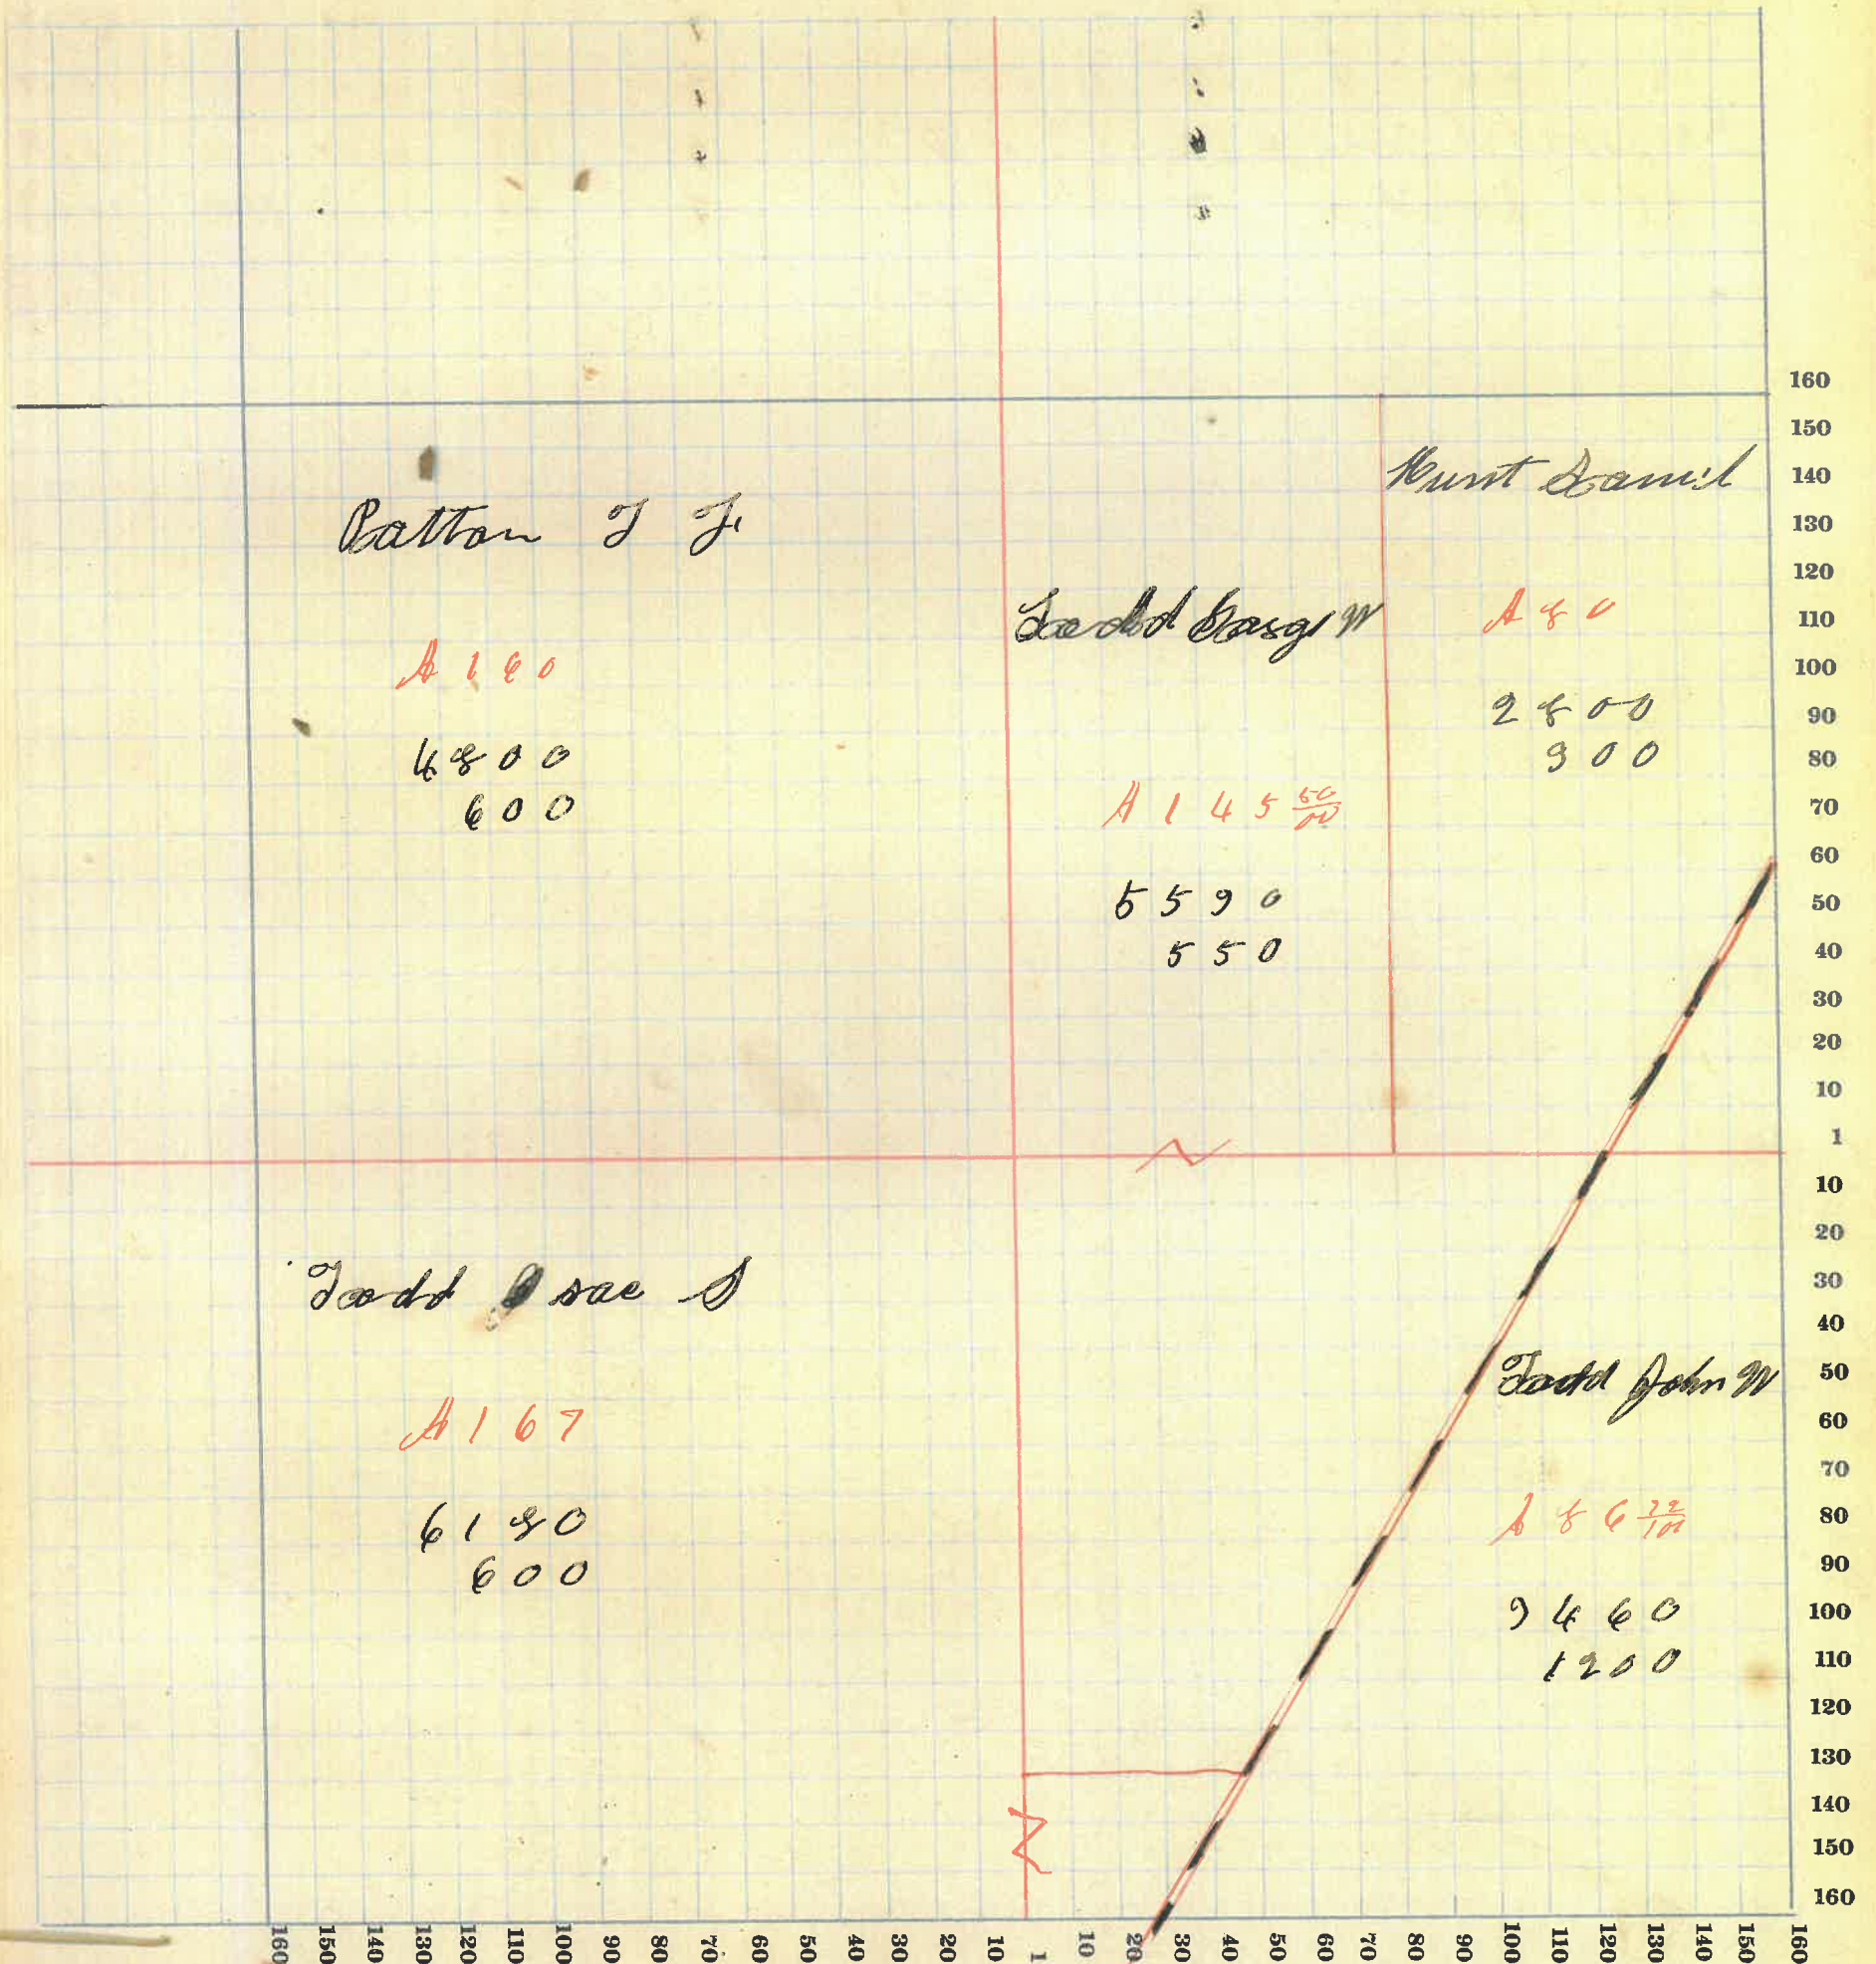 Patton T J.
A 160
4800
600
Todd George W
A 145 50/00
5590
550
Hunt Daniel
A 80
2800
300
Todd Isac S
A 167
6180
600
Todd John W
A 86 72/100
3460
1200
160
150
140
130
120
110
100
90
80
70
60
50
40
30
20
10
1
10
20
30
40
50
60
70
80
90
100
110
120
130
140
150
160
160 150 140 130 120 110 100 90 80 70 60 50 40 30 20 10 1 10 20 30 40 50 60 70 80 90 100 110 120 130 140 150 160